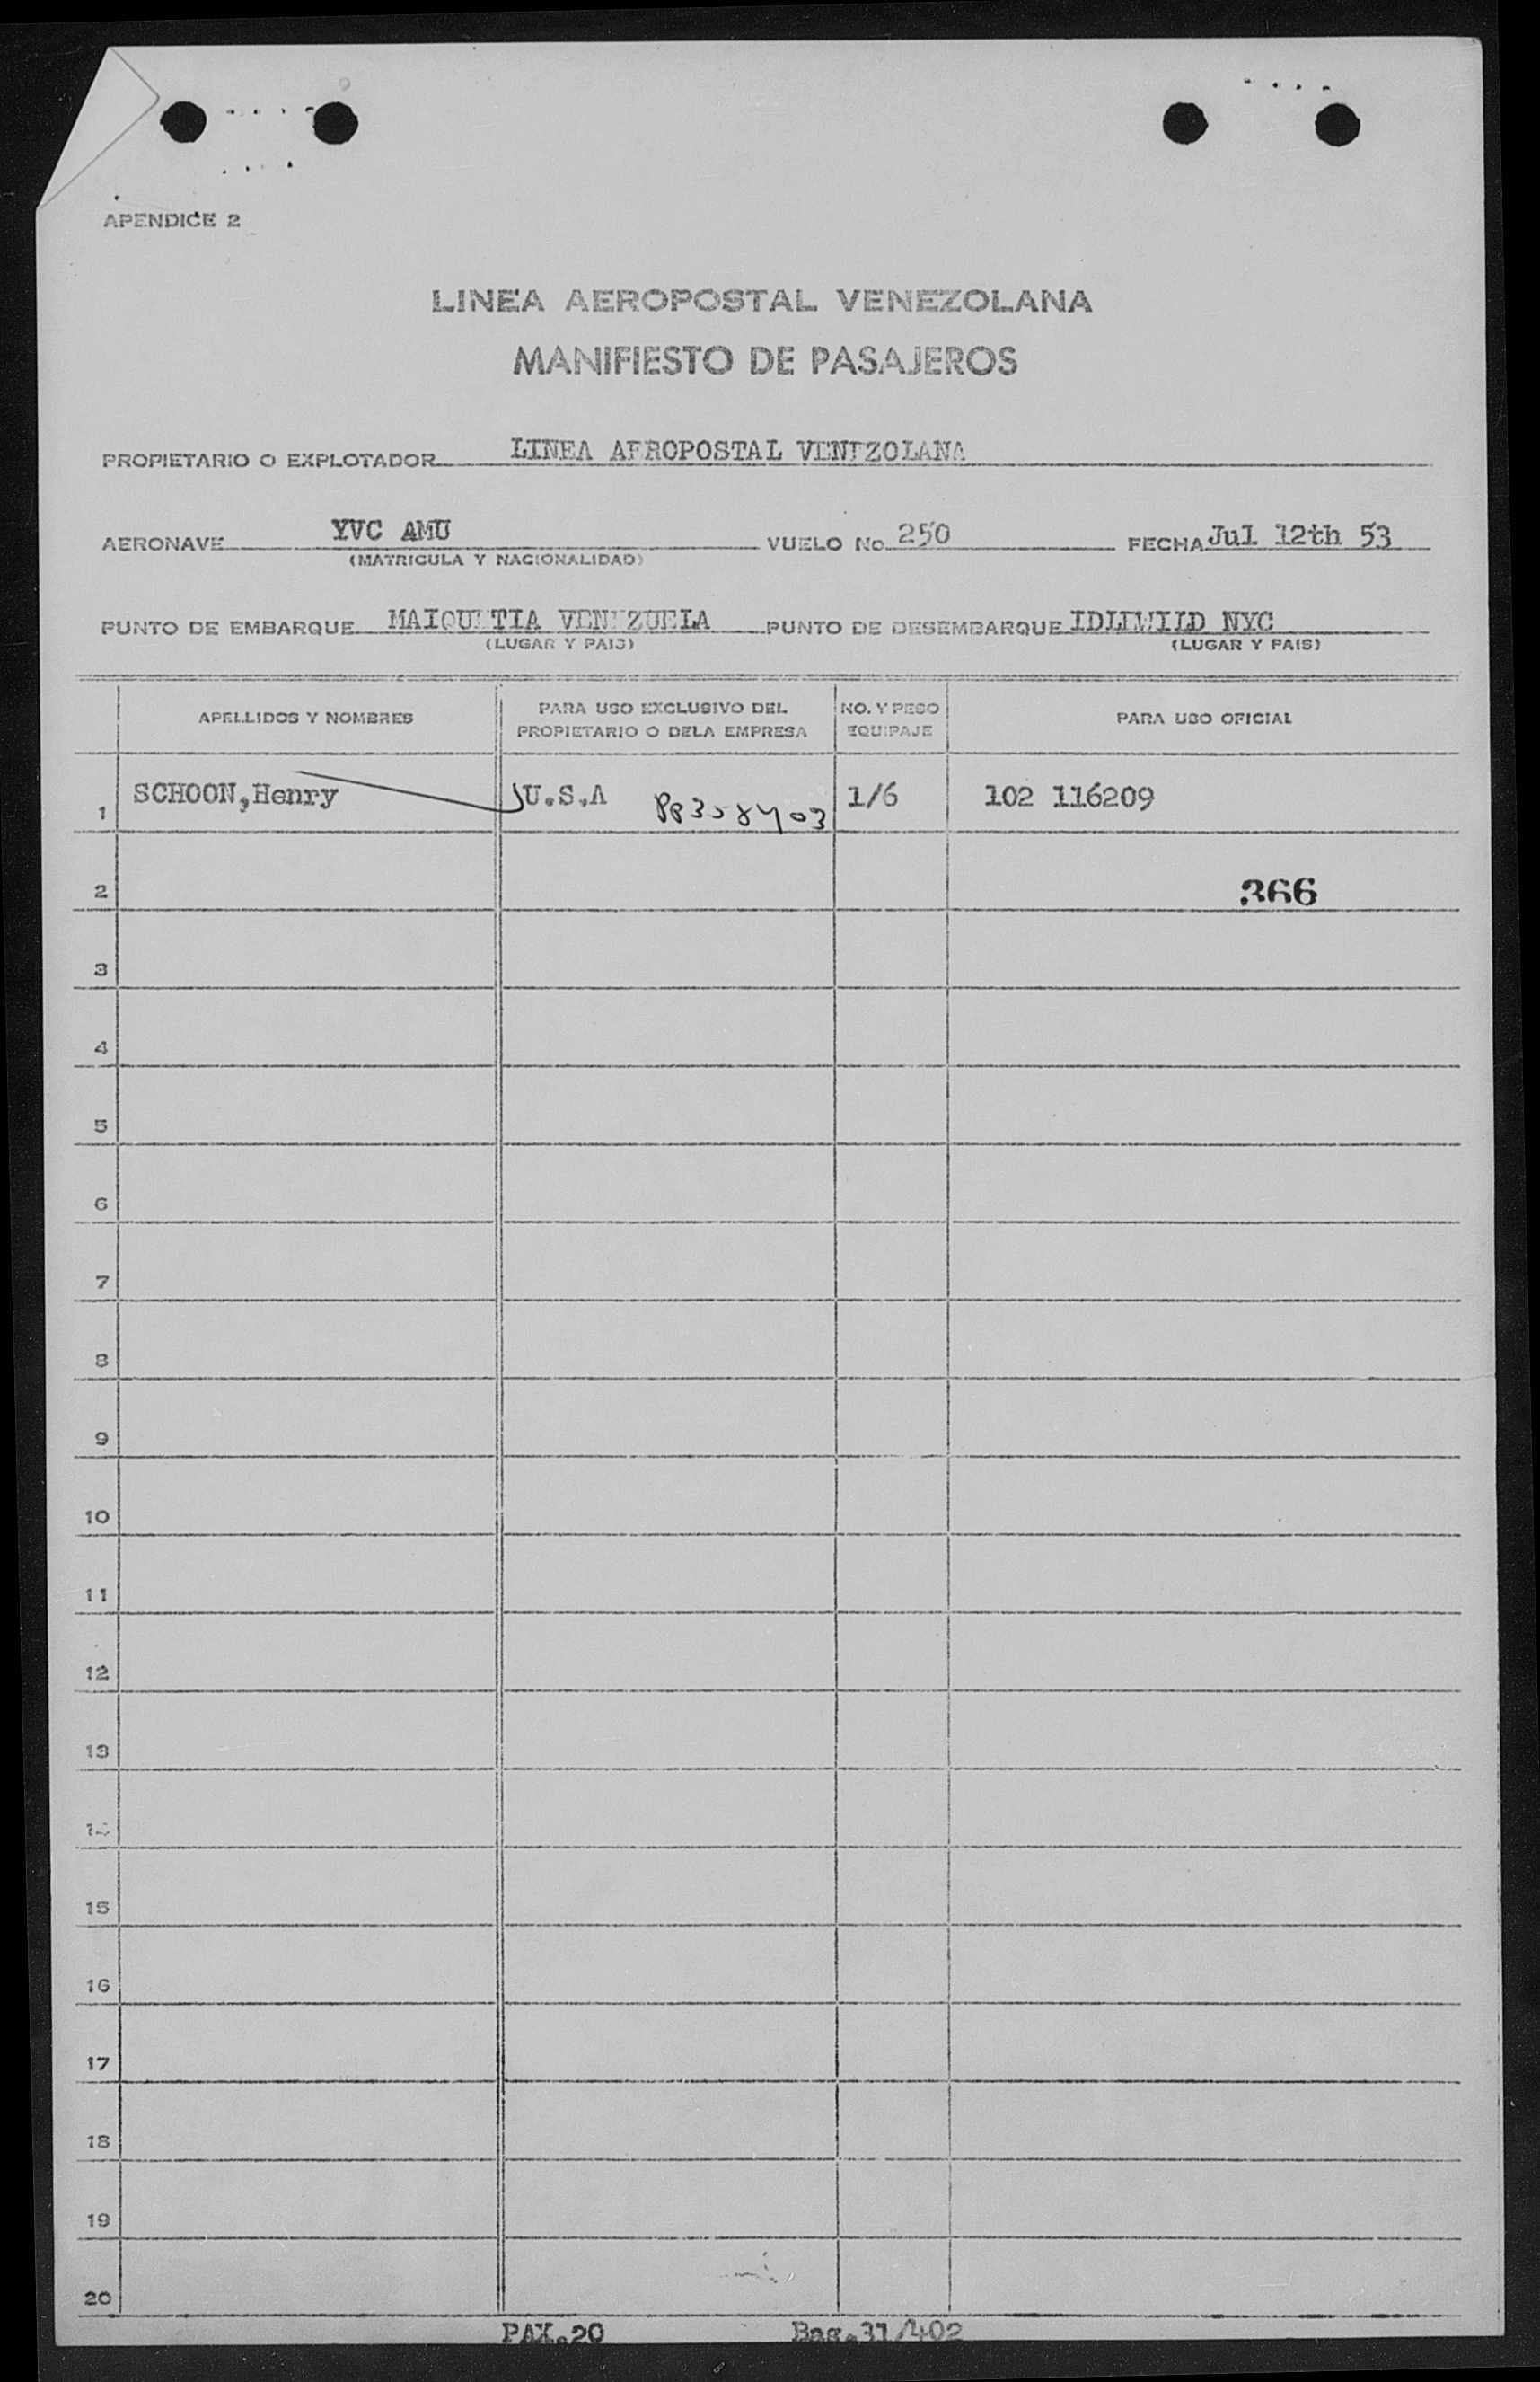 APENDICE 2
LINEA AEROPOSTAL VENEZOLANA
MANIFIESTO DE PASAJEROS
PROPIETARIO O EXPLOTADOR LINEA AEROPOSTAL VENEZOLANA
AERONAVE YVC AMU VUELO No 250 FECHA Jul 12th 53
(MATRICULA Y NACIONALIDAD)
PUNTO DE EMBARQUE MAIQUETIA VENEZUELA PUNTO DE DESEMBARQUE IDLEWILD NYC
(LUGAR Y PAIS) (LUGAR Y PAIS)
APELLIDOS Y NOMBRES PARA USO EXCLUSIVO DEL PROPIETARIO O DELA EMPRESA NO. Y PESO EQUIPAJE PARA USO OFICIAL
1 SCHOON,Henry U.S.A 1/6 102 116209
2 366
3
4
5
6
7
8
9
10
11
12
13
14
15
16
17
18
19
20
PAX.20 Bag.31/402